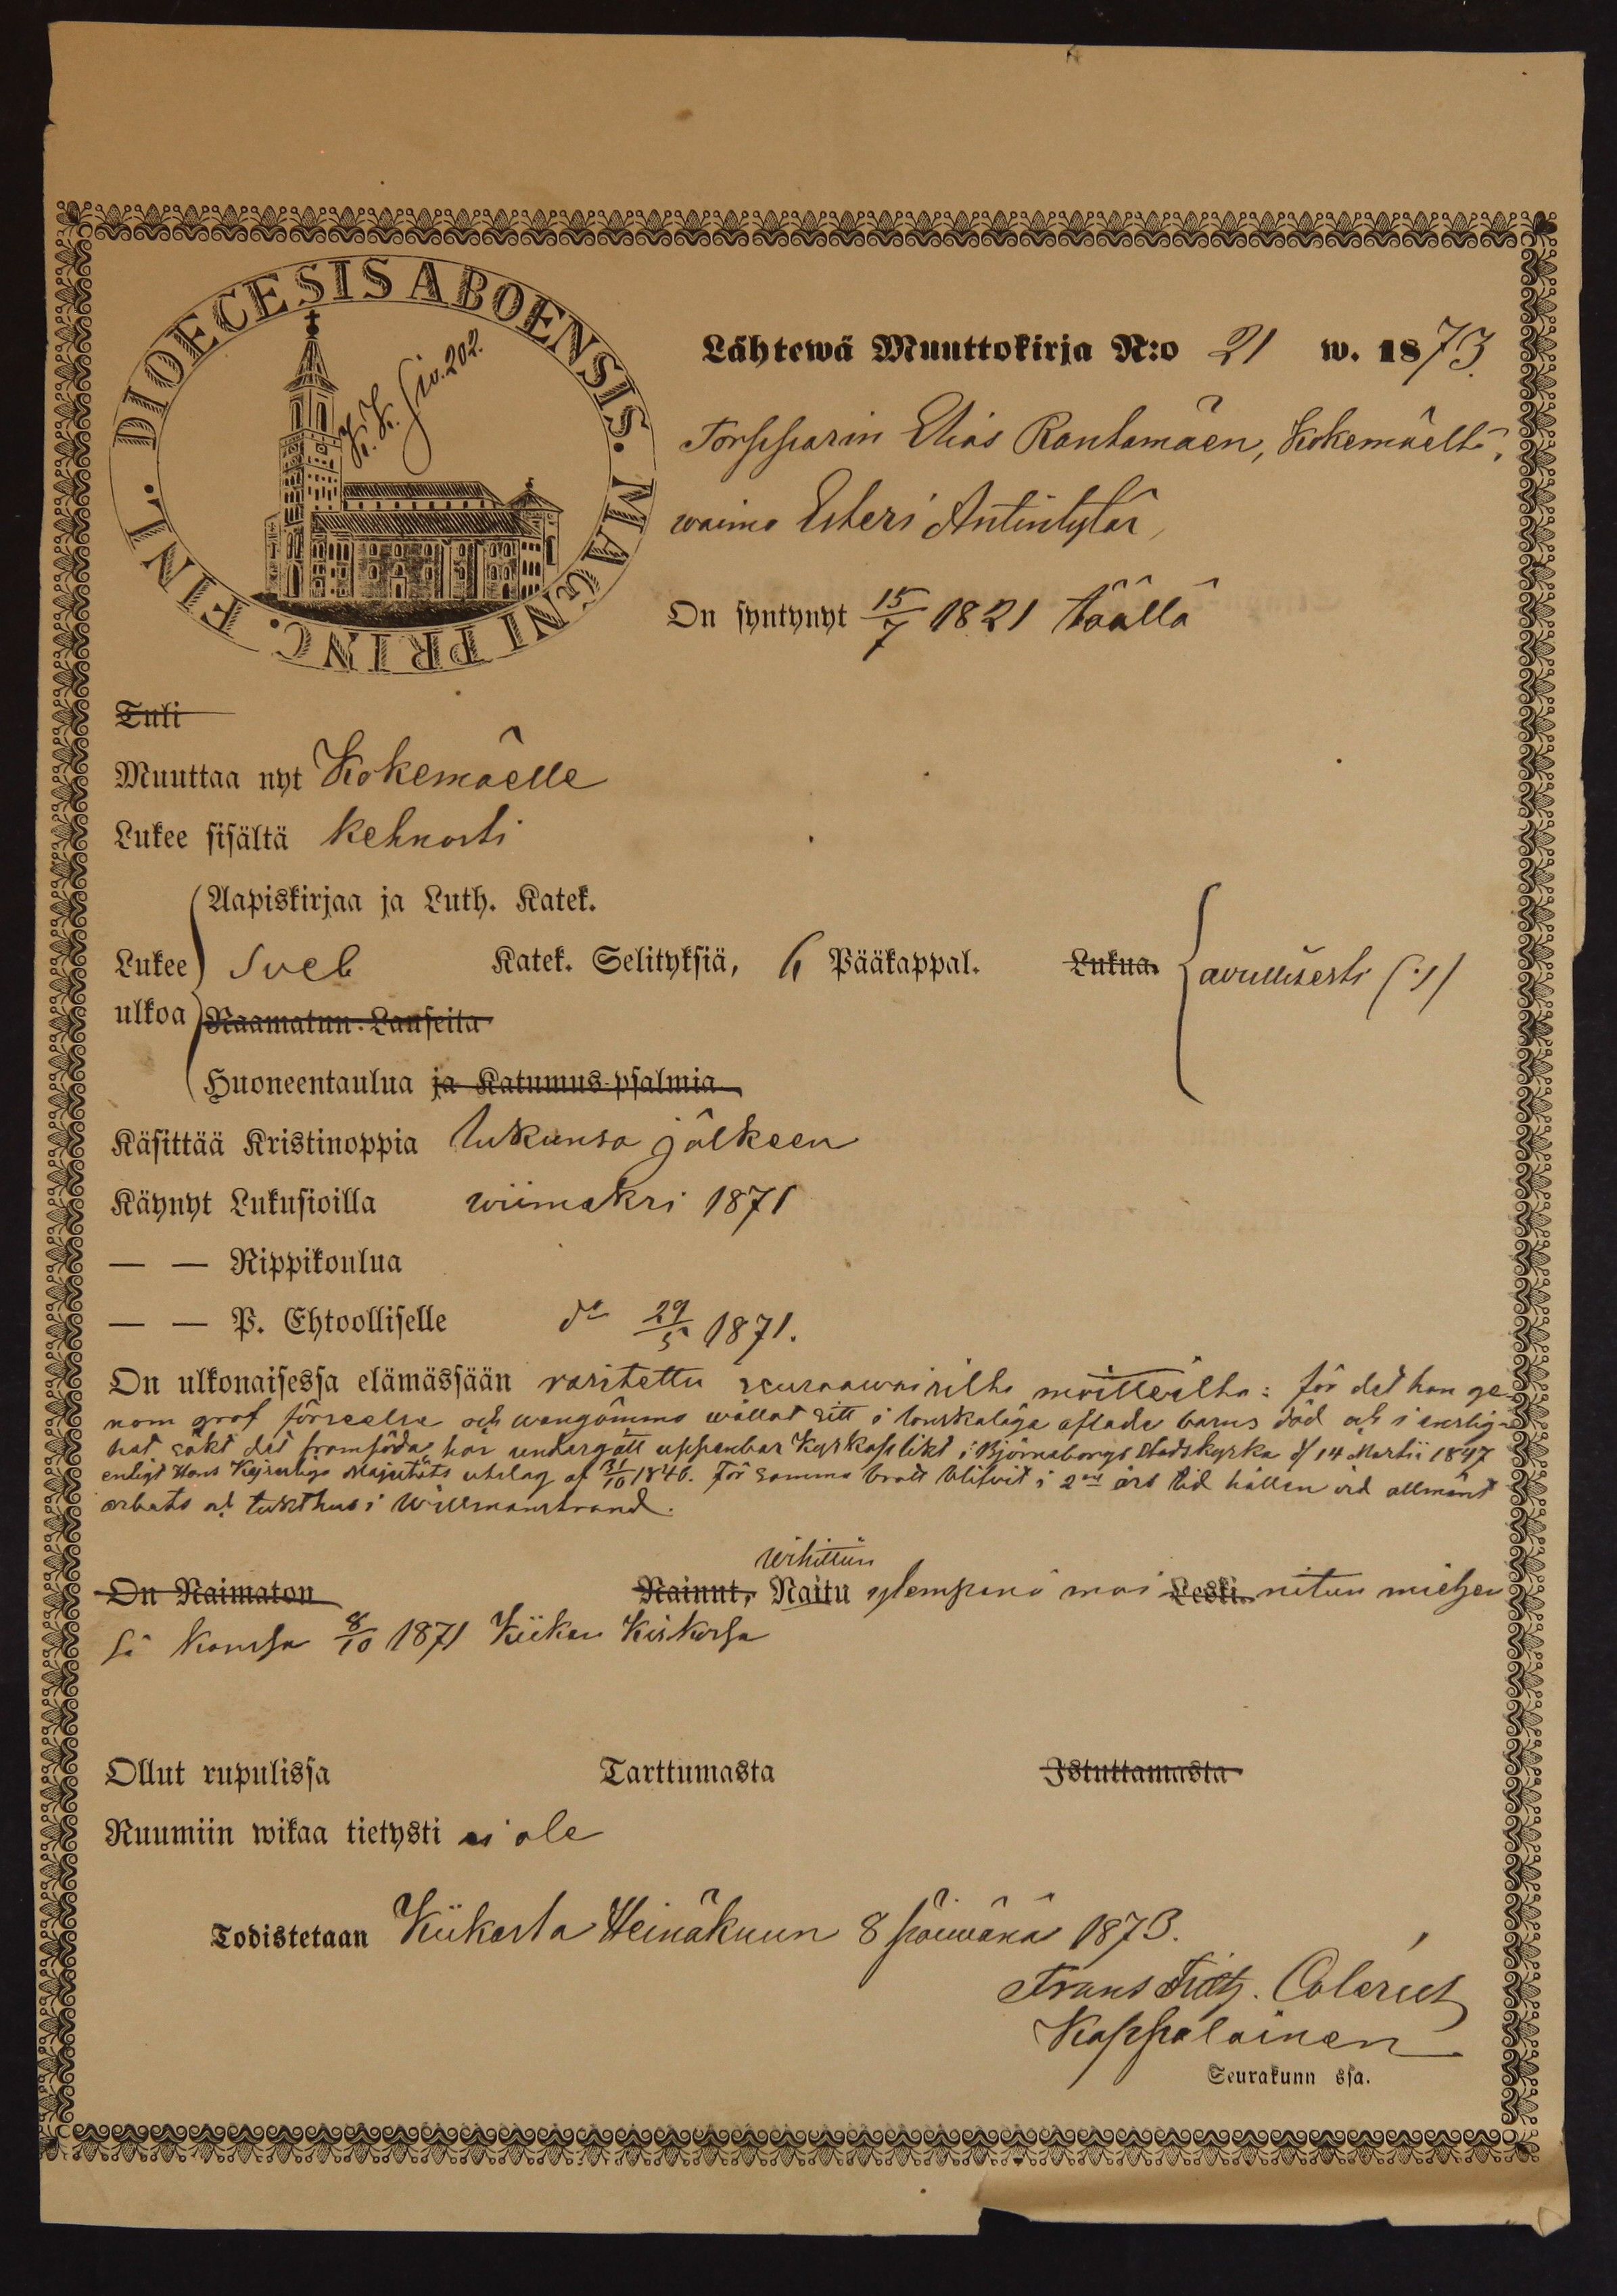 DIOECESIS ABOENSIS. MAGNI PRINC. FINL.
K. K. Siv. 202.
Lähtewä Muuttokirja N:o 21 w. 1873.
Torpparin Elias Rantamäen, Kokemäeltä,
waimo Esteri Antintytär,
On syntynyt 15/7 1821 täällä
Tuli
Muuttaa nyt Kokemäelle
Lukee sisältä kehnosti
Aapiskirjaa ja Luth. Katek.
Lukee ulkoa Sveb Katek. Selityksiä, 6 Pääkappal. Lukua. avullisesti (:/)
Raamatun-Lauseita
Huoneentaulua ja Katumus-psalmia
Käsittää Kristinoppia lukunsa jälkeen
Käynyt Lukusioilla wiimeksi 1871
— — Rippikoulua
— — P. Ehtoolliselle d° 29/5 1871.
On ulkonaisessa elämässään rasitettu seuraawaisilta moitteilta: för det hon ge-
nom grof förseelse och wangömmo wållat sitt i lönskaläge aflade barns död och i
hat sökt det framföda, har undergått uppenbar Kyrkoplikt i Björneborgs Stadskyrka d/ 14 Martii 1847
enligt Hans Kejserliga Majestäts utslag af 31/10 1846. För samma brott blifvit i 2ne års tid hållen vid allmänt
arbete å tukthus i Willmanstrand.
wihittiin
On Naimaton Nainut, Naitu ylempänä mai Leski. nitun miehen
sä kanssa 8/10 1871 Kiikan Kirkossa
Ollut rupulissa Tarttumasta Istuttamasta
Ruumiin wikaa tietysti ei ole
Todistetaan Kiikasta Heinäkuun 8 päiwänä 1873.
Frans Colérus
Kappalainen
Seurakunn ssa.